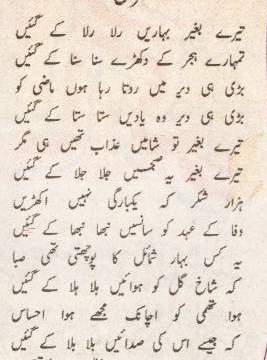 تیرے بغیر بہاریں رلا رلا کے گئیں
تمہارے ہجر کے دکھڑے سنا سنا کے گئیں
بڑی ہی دیر میں روتا رہا ہوں ماضی کو
بڑی ہی دیر وہ یادیں ستا ستا کے گئیں
تیرے بغیر تو شامیں عذاب تھیں ہی مگر
تیرے بغیر یہ صبحیں جلا جلا کے گئیں
ہزار شکر کہ یکبارگی نہیں اکھڑیں
وفا کے عہد کو سانسیں نبھا نبھا کے گئیں
یہ کس بہار شمائل کا پوچھتی تھی صبا
کہ شاخ گل کو ہوائیں ہلا ہلا کے گئیں
ہوا تھمی کو اچانک مجھے ہوا احساس
کہ جیسے اس کی صدائیں بلا بلا کے گئیں